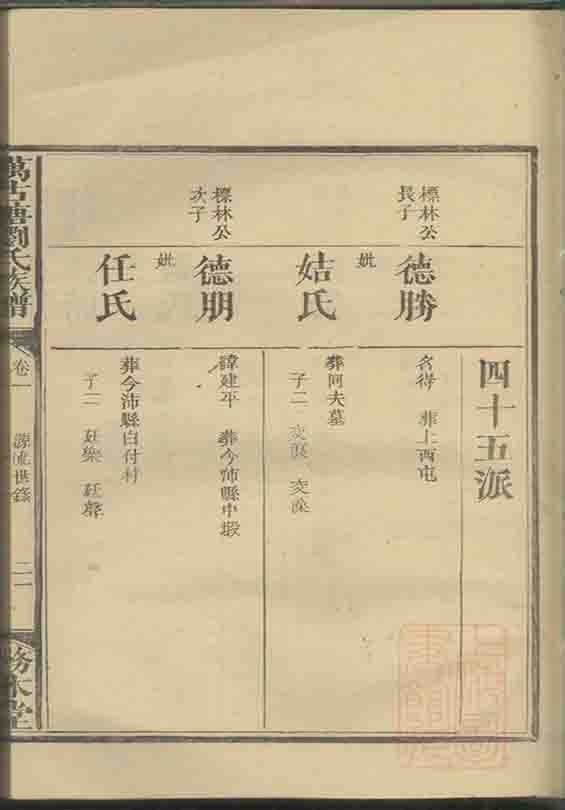 四十五派
標林公
長子
德勝
妣
姞氏
名得 葬上西屯
葬同夫墓
子二
標林公
次子
德朋
妣
任氏
諱建平 葬今沛縣中塅
葬今沛縣白付村
子二 廷樂 廷馨
萬古塘劉氏族譜
卷一
源流世錄
二一
務本堂